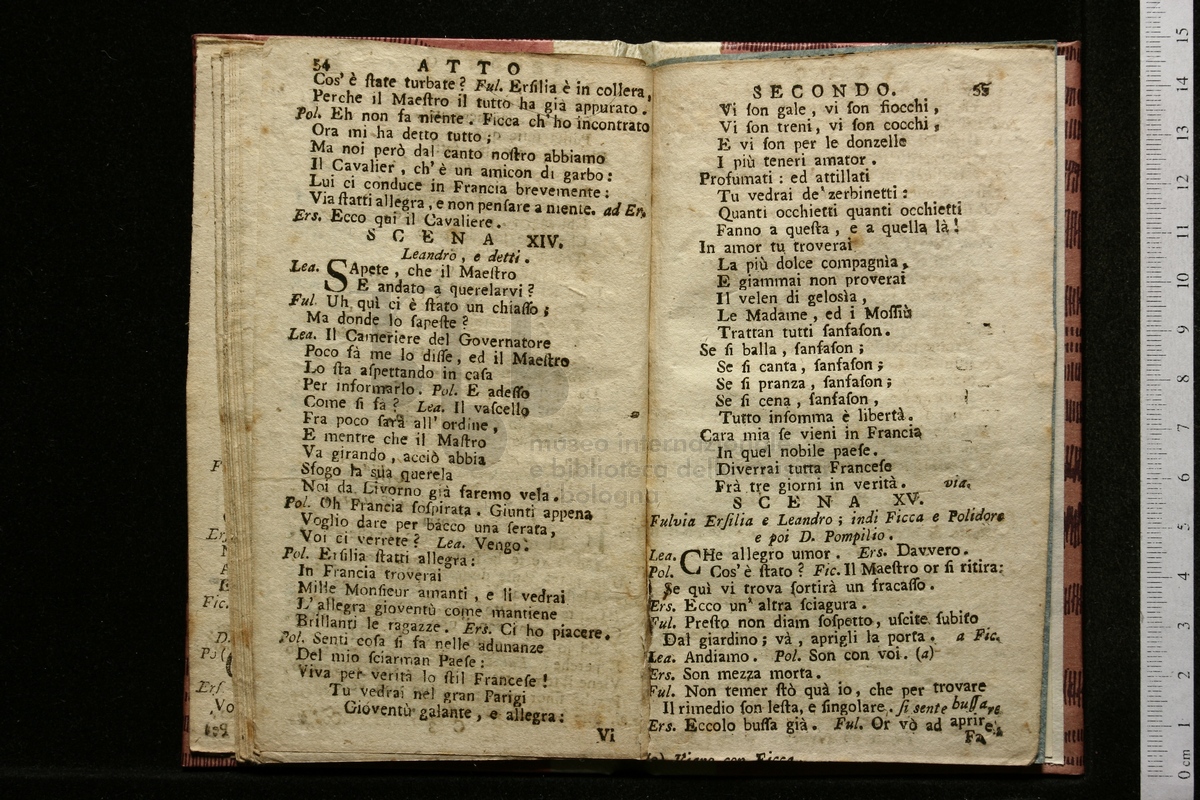 54 ATTO
Cos' è ſtate turbate? Ful. Erſilia è in collera,
Perche il Maeſtro il tutto ha già appurato.
Pol. Eh non fa niente. Ficca ch' ho incontrato
Ora mi ha detto tutto;
Ma noi però dal canto noſtro abbiamo
Il Cavalier, ch' è un amicon di garbo:
Lui ci conduce in Francia brevemente:
Via ſtatti allegra, e non penſare a niente. ad Er.
Ers. Ecco qui il Cavaliere.
SCENA XIV.
Leandro, e detti.
Lea. SApete, che il Maeſtro
E andato a querelarvi?
Ful. Uh quì ci è ſtato un chiaſſo;
Ma donde lo ſapeſte?
Lea. Il Cameriere del Governatore
Poco fà me lo diſſe, ed il Maeſtro
Lo ſta aſpettando in caſa
Per informarlo. Pol. E adeſſo
Come ſi fa? Lea. Il vaſcello
Fra poco ſarà all' ordine,
E mentre che il Maſtro
Va girando, acciò abbia
Sfogo la sua querela
Noi da Livorno già faremo vela.
Pol. Oh Francia ſoſpirata. Giunti appena
Voglio dare per bacco una ſerata,
Voi ci verrete? Lea. Vengo.
Pol. Erſilia ſtatti allegra:
In Francia troverai
Mille Monſieur amanti, e lì vedrai
L' allegra gioventù come mantiene
Brillanti le ragazze. Ers. Ci ho piacere.
Pol. Senti coſa ſi fa nelle adunanze
Del mio sciarman Paeſe:
Viva per verità lo ſtil Franceſe!
Tu vedrai nel gran Parigi
Gioventù galante, e allegra:
Vi
SECONDO. 55
Vi ſon gale, vi ſon fiocchi,
Vi ſon treni, vi ſon cocchi,
E vi ſon per le donzelle
I più teneri amator.
Profumati: ed attillati
Tu vedrai de' zerbinetti:
Quanti occhietti quanti occhietti
Fanno a queſta, e a quella là!
In amor tu troverai
La più dolce compagnìa,
E giammai non proverai
Il velen di gelosìa,
Le Madame, ed i Moſſiù
Trattan tutti ſanfaſon.
Se ſi balla, ſanfaſon;
Se ſi canta, ſanfaſon;
Se ſi pranza, ſanfaſon;
Se ſi cena, ſanfaſon,
Tutto inſomma è libertà.
Cara mia ſe vieni in Francia
In quel nobile paeſe.
Diverrai tutta Franceſe
Frà tre giorni in verità. via.
SCENA XV.
Fulvia Erſilia e Leandro; indi Ficca e Polidore
e poi D. Pompilio.
Lea. CHe allegro umor. Ers. Davvero.
Pol. Cos' è ſtato? Fic. Il Maeſtro or ſi ritira:
Se quì vi trova ſortirà un fracaſſo.
Ers. Ecco un' altra sciagura.
Ful. Preſto non diam ſoſpetto, uſcite ſubito
Dal giardino; và, aprigli la porta. a Fic.
Lea. Andiamo. Pol. Son con voi. (a)
Ers. Son mezza morta.
Ful. Non temer ſtò quà io, che per trovare
Il rimedio ſon leſta, e ſingolare. ſi sente buſſare
Ers. Eccolo buſſa già. Ful. Or vò ad aprire.
Fa